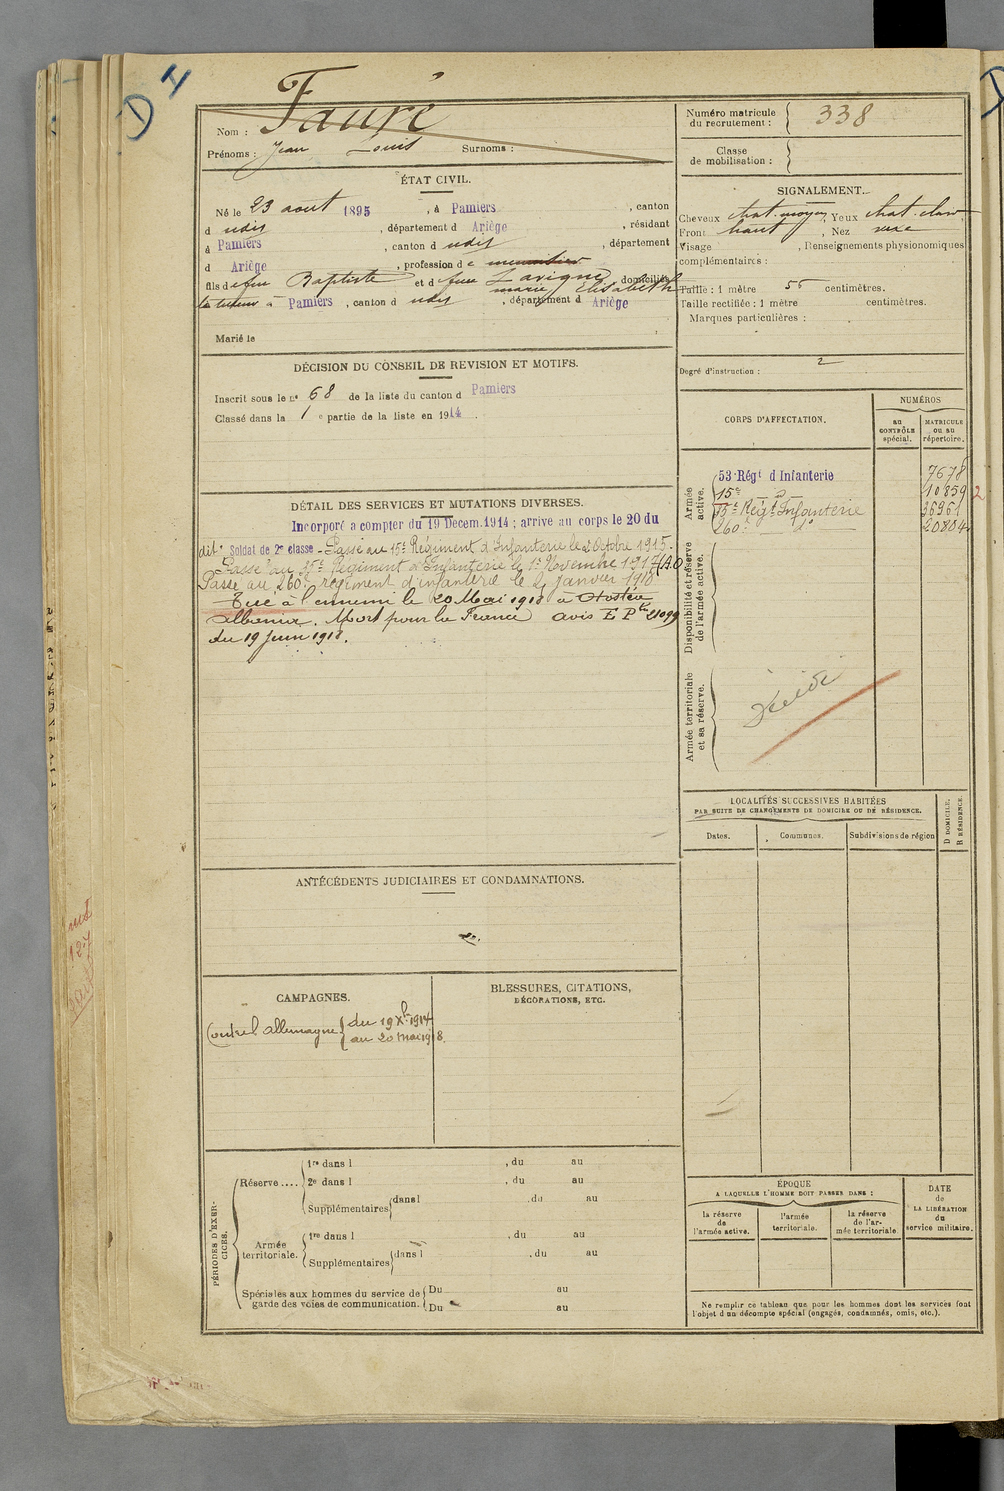 D
H
Nom : Fauré
Prénoms : Jean Louis Surnoms :
Numéro matricule du recrutement : 338
Classe de mobilisation :
ÉTAT CIVIL.
Né le 23 aout 1895, à Pamiers, canton
d udis, département d Ariège, résidant
à Pamiers, canton d udis, département
d Ariège, profession de menuisier
fils de feu Baptiste et de feue Lavigne, domiciliés
marie Elisabeth
à Pamiers, canton d udis, département d Ariège
Marié le
SIGNALEMENT.
Cheveux chat. moyen, Yeux chat. clair
Front haut, Nez vexe
Visage , Renseignements physionomiques
complémentaires :
Taille : 1 mètre 55 centimètres.
Taille rectifiée : 1 mètre centimètres.
Marques particulières :
Degré d'instruction : 2
DÉCISION DU CONSEIL DE REVISION ET MOTIFS.
Inscrit sous le n° 68 de la liste du canton d Pamiers
Classé dans la 1e partie de la liste en 1914.
DÉTAIL DES SERVICES ET MUTATIONS DIVERSES.
Incorporé a compter du 19 Decem. 1914 ; arrive au corps le 20 du
dit. Soldat de 2e classe - Passé au 15e Régiment d'Infanterie le 2 Octobre 1915.
Passé au 35e Régiment d'Infanterie le 1er Novembre 1917 (A.O
Passé au 260e régiment d'infanterie le 4 janvier 1918
Tué à l'ennemi le 20 Mai 1918 à
Albanie. Mort pour la France avis E Ple 21099
du 19 Juin 1918.
CORPS D'AFFECTATION.
NUMÉROS
AU CONTRÔLE spécial.
MATRICULE ou au répertoire.
Armée active.
53e Régt d Infanterie 7678
15e d° 10859 2
35e Régt Infanterie 36961
260e d° 20804
Disponibilité et réserve de l'armée active.
Armée territoriale et sa réserve.
Décédé
LOCALITÉS SUCCESSIVES HABITÉES
PAR SUITE DE CHANGEMENTS DE DOMICILE OU DE RÉSIDENCE.
Dates.
Communes.
Subdivisions de région
D DOMICILE.
R RÉSIDENCE.
ANTÉCÉDENTS JUDICIAIRES ET CONDAMNATIONS.
CAMPAGNES.
Contre l'allemagne du 19 Xbre 1914
au 20 mai 1918.
BLESSURES, CITATIONS,
DÉCORATIONS, ETC.
PÉRIODES D'EXERCICES.
Réserve ....
1re dans l , du au
2e dans l , du au
Supplémentaires dans l , du au
Armée territoriale.
1re dans l , du au
Supplémentaires dans l , du au
Spéciales aux hommes du service de garde des voies de communication.
Du au
Du au
ÉPOQUE
A LAQUELLE L'HOMME DOIT PASSER DANS :
la réserve de l'armée active.
l'armée territoriale.
la réserve de l'armée territoriale
DATE de LA LIBÉRATION du service militaire.
Ne remplir ce tableau que pour les hommes dont les services font
l'objet d'un décompte spécial (engagés, condamnés, omis, etc.).